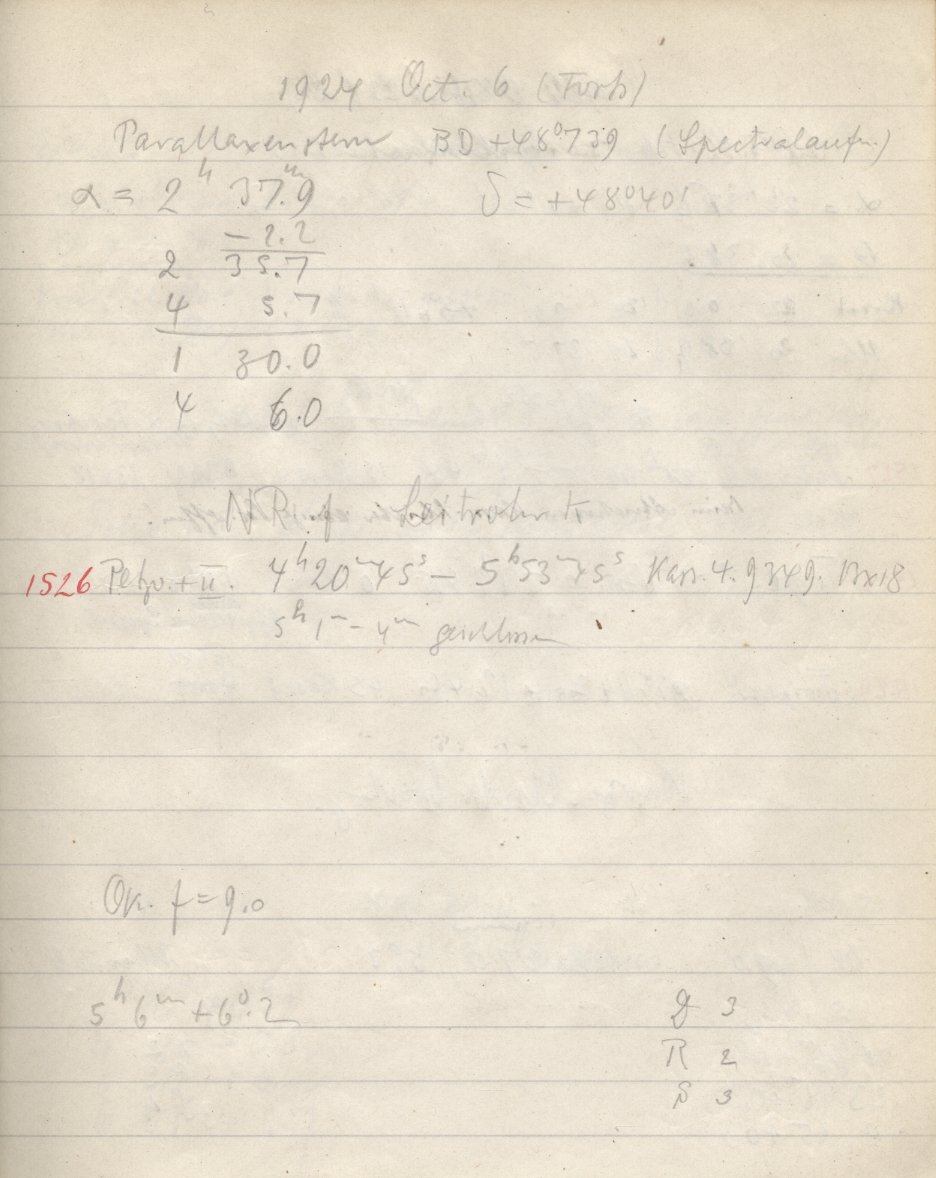 1924 Oct. 6 (Forts)
Parallaxenstern BD +48°739 (Spectralaufn.)
α = 2ʰ 37ᵐ.9 δ = +48°40'
– 2.2
2 35.7
4 5.7
1 30.0
4 6.0
N.R. f Leitrohr
1526 Petzv. + II. 4ʰ20ᵐ45ˢ – 5ʰ53ᵐ45ˢ Kass. 4. 9x9.
5ʰ1ᵐ – 4ᵐ geschlossen
Ok. f = 9.0
5ʰ6ᵐ +6°.2 D 3
R 2
S 3